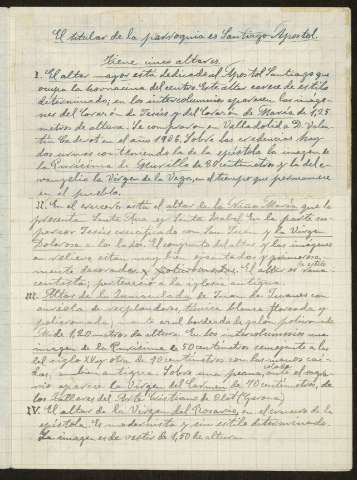 El titular de la parroquia es Santiago Apostol.
Tiene cinco altares
I. El altar mayor está dedicado al Apostol Santiago que
ocupa la hornacina del centro. Este altar carece de estilo
determinado; en los intercolumnios aparecen las image-
nes del Corazón de Jesús y del Corazón de María de 1,25
metros de altura. Se compraron en Valladolid a D. Valen
tín Caderot en el año 1926. Sobre las credencias hay
dos urnas conteniendo la de la epístola la imagen de
la Purísima de Murillo de 80 centímetros y la del e-
vangelio la Virgen de la Vega, en el tiempo que permanece
en el pueblo.
II. En el crucero está el altar de la Niña María que la
presenta Santa Ana y Santa Isabel. En la parte su-
perior Jesús crucificado con San Juan y la Virgen
Dolorosa a los lados. El conjunto del altar y las imágenes
en relieve están muy bien ejecutados y primorosa-
mente decorados y policromados. El altar es de estilo rena-
centista; perteneció a la iglesia antigua.
III. Altar de la Inmaculada de Juan de Juanes con
aureola de resplandores, túnica blanca floreada y
policromada, manto azul bordeado de galon policromado
de 1,20 metros de altura. En los intercolumnios una
imagen de la Purísima de 50 centímetros semejante a las
del siglo XV y otra de 40 centímetros con las manos caí-
das, también antigua. Sobre una peana, ante el sagra-
rio aparece la Virgen del Carmen de 70 centímetros, de
los Talleres del Arte Cristiano de Olot (Gerona)
IV. El altar de la Virgen del Rosario, en el crucero de la
epístola. Es modernista y sin estilo determinado.
La imagen es de vestir de 1,50 de altura